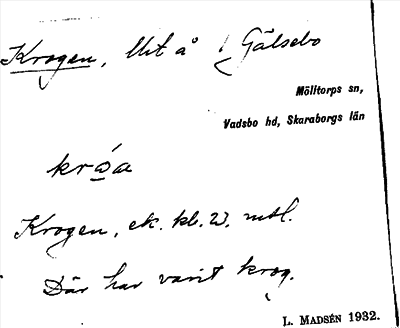 Krogen, Ut å / Gälsebo
Mölltorps sn,
Vadsbo hd, Skaraborgs län
Krogen, ek. kl. 22. mtl.
Där har varit krog.
L. MADSÉN 1932.